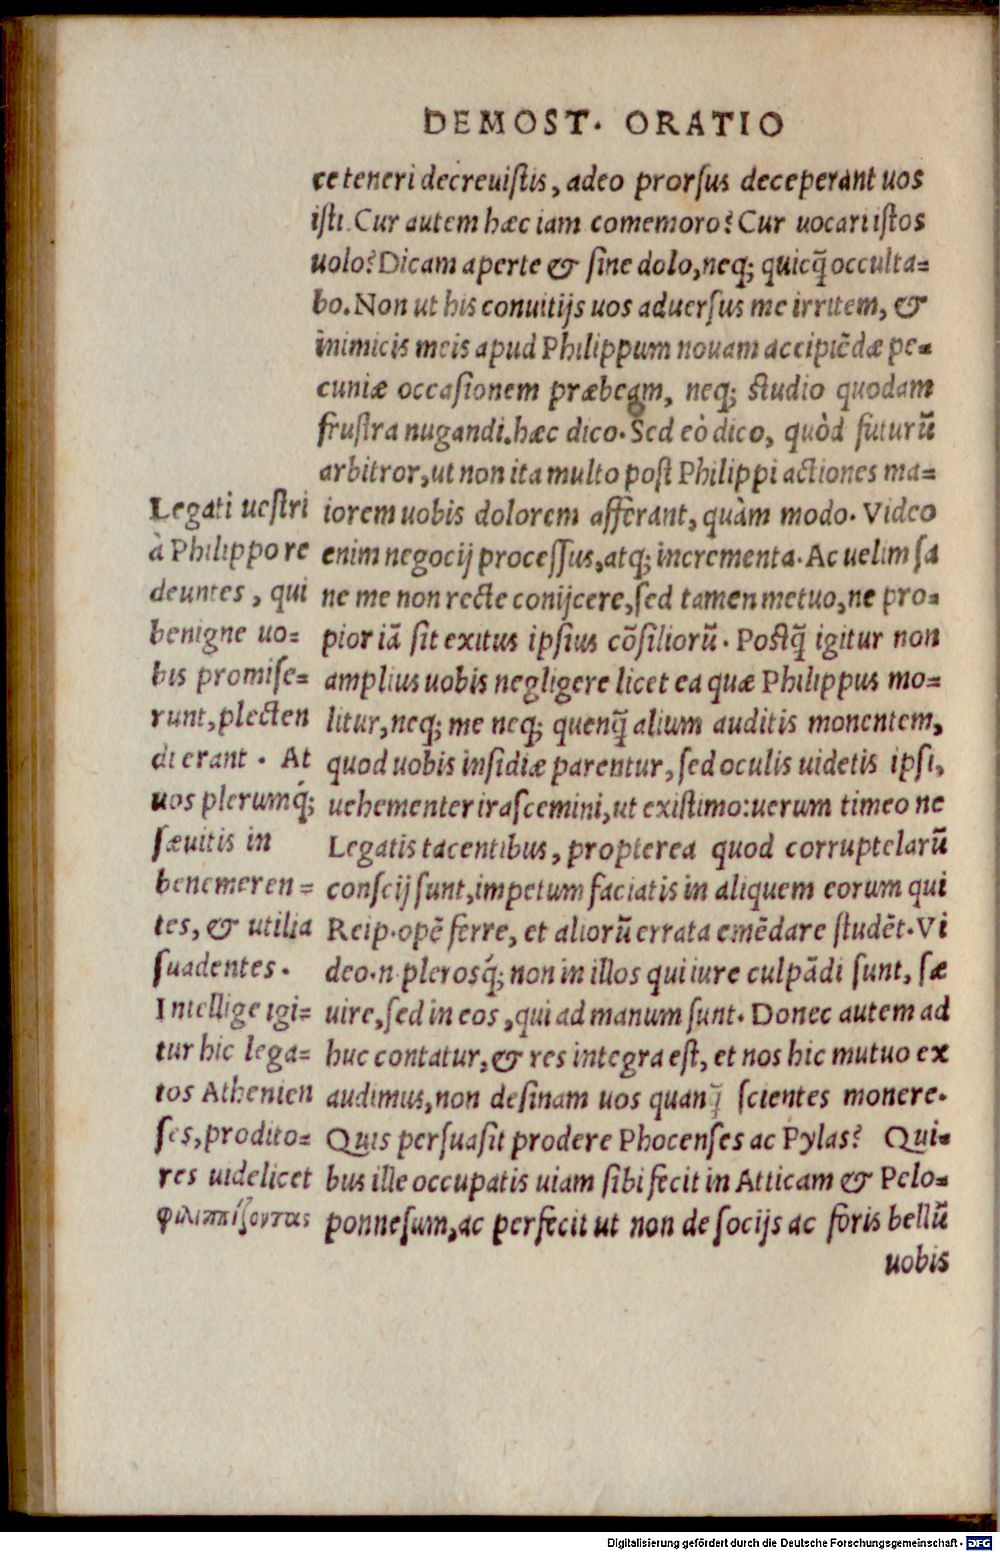 DEMOST. ORATIO
ce teneri decreuistis, adeo prorsus deceperant uos
isti. Cur autem hæc iam comemoro? Cur uocari istos
uolo? Dicam aperte & sine dolo, neq; quicq̃ occulta=
bo. Non ut his conuitijs uos aduersus me irritem, &
inimicis meis apud Philippum nouam accipiẽdæ pe=
cuniæ occasionem præbeam, neq; studio quodam
frustra nugandi, hæc dico. Sed eò dico, quòd futurũ
arbitror, ut non ita multo post Philippi actiones ma=
iorem uobis dolorem afferant, quàm modo. Video
enim negocij processus, atq; incrementa. Ac uelim sa
ne me non recte conijcere, sed tamen metuo, ne pro=
pior iã sit exitus ipsius cõsiliorũ. Postq̃ igitur non
amplius uobis negligere licet ea quæ Philippus mo=
litur, neq; me neq; quenq̃ alium auditis monentem,
quod uobis insidiæ parentur, sed oculis uidetis ipsi,
uehementer irascemini, ut existimo: uerum timeo ne
Legatis tacentibus, propterea quod corruptelarũ
conscij sunt, impetum faciatis in aliquem eorum qui
Reip. opẽ ferre, et aliorũ errata emẽdare studẽt. Vi
deo.n. plerosq́; non in illos qui iure culpãdi sunt, sæ
uire, sed in eos, qui ad manum sunt. Donec autem ad
huc contatur, & res integra est, et nos hic mutuo ex
audimus, non desinam uos quanq̃ scientes monere.
Quis persuasit prodere Phocenses ac Pylas? Qui=
bus ille occupatis uiam sibi fecit in Atticam & Pelo=
ponnesum, ac perfecit ut non de socijs ac foris bellũ
uobis
Legati uestri
à Philippo re
deuntes, qui
benigne uo=
bis promise=
runt, plecten
di erant. At
uos plerumq́;
sæuitis in
benemeren=
tes, & utilia
suadentes.
Intellige igi=
tur hic lega=
tos Athenien
ses, prodito=
res uidelicet
φιλιππίζοντας
Digitalisierung gefördert durch die Deutsche Forschungsgemeinschaft - DFG